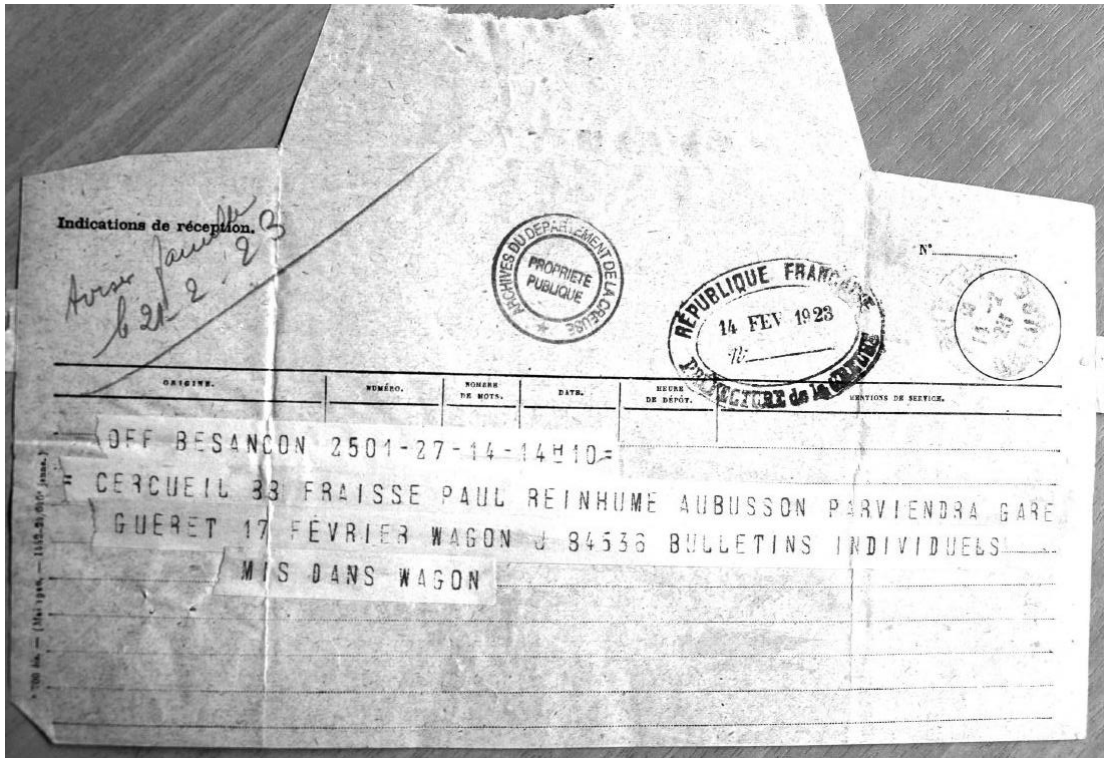 Indications de réception.
Aviser famille
le 21-2-23
ARCHIVES DU DEPARTEMENT DE LA CREUSE
PROPRIÉTÉ
PUBLIQUE
RÉPUBLIQUE FRANÇAISE
14 FEV 1923
N°
PRÉFECTURE de la CREUSE
N°
ORIGINE.
NUMÉRO.
NOMBRE
DE MOTS.
DATE.
HEURE
DE DÉPÔT.
MENTIONS DE SERVICE.
OFF BESANCON 2501-27-14-14H10=
= CERCUEIL 33 FRAISSE PAUL REINHUME AUBUSSON PARVIENDRA GARE
GUERET 17 FÉVRIER WAGON J 84536 BULLETINS INDIVIDUELS
MIS DANS WAGON